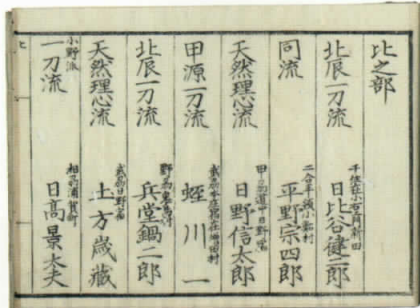 比之部
北辰一刀流 千住在小右衛門新田 日比谷健二郎
同流 二合半領小鮎村 平野宗四郎
天然理心流 甲州道中日野宿 日野信太郎
甲源一刀流 蛭川 一
北辰一刀流 兵堂鍋二郎
天然理心流 武州日野宿 土方歳蔵
小野派
一刀流 相州浦賀 日高景大夫